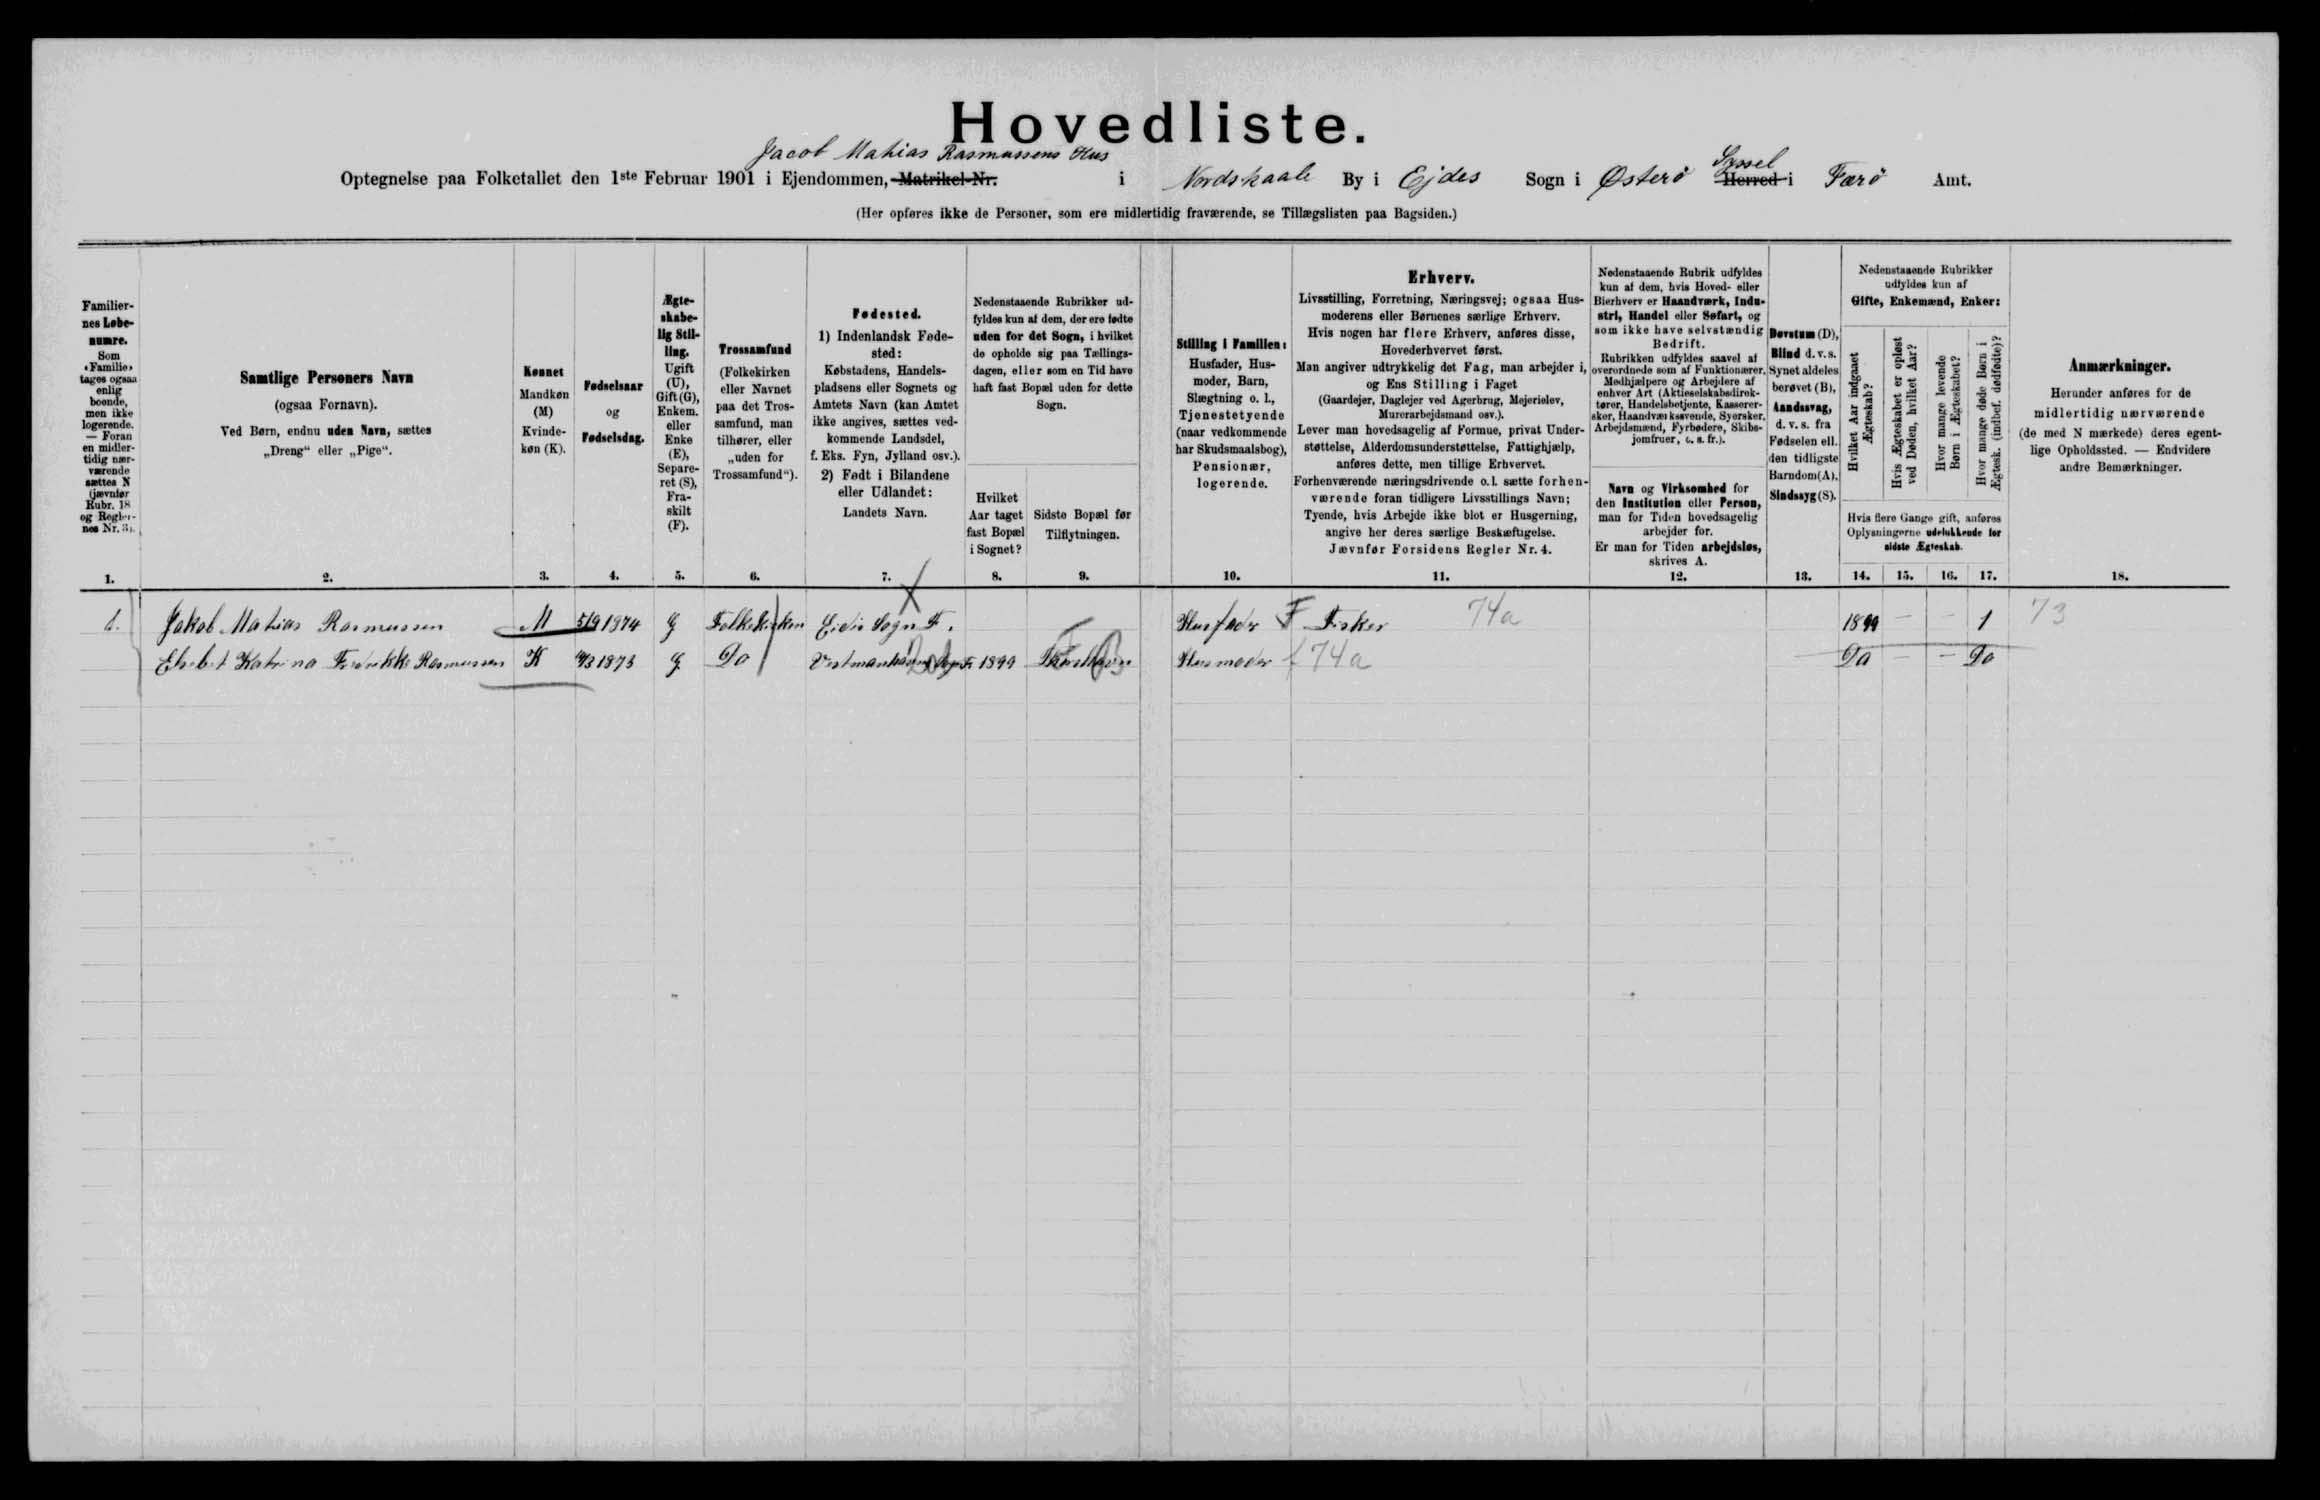 Hovedliste.
Jacob Mathias Rasmussens Hus
Syssel
Optegnelse paa Folketallet den 1ste Februar 1901 i Ejendommen, Matrikel-Nr. i Nordskaale By i Ejdes Sogn i Østerø Herred i Færø Amt.
(Her opføres ikke de Personer, som ere midlertidig fraværende, se Tillægslisten paa Bagsiden.)
Familier-
nes Løbe-
numre.
Som
„Familie“
tages ogsaa
enlig
boende,
men ikke
logerende.
— Foran
en midler-
tidig nær-
værende
sættes N
(jævnfør
Rubr. 18
og Regler-
nes Nr. 3).
1.
Samtlige Personers Navn
(ogsaa Fornavn).
Ved Børn, endnu uden Navn, sættes
„Dreng“ eller „Pige“.
2.
Kønnet
Mandkøn
(M)
Kvinde-
køn (K).
3.
Fødselsaar
og
Fødselsdag.
4.
Ægte-
skabe-
lig Stil-
ling.
Ugift
(U),
Gift (G),
Enkem.
eller
Enke
(E),
Separe-
ret (S),
Fra-
skilt
(F).
5.
Trossamfund
(Folkekirken
eller Navnet
paa det Tros-
samfund, man
tilhører, eller
„uden for
Trossamfund“).
6.
Fødested.
1) Indenlandsk Føde-
sted:
Købstadens, Handels-
pladsens eller Sognets og
Amtets Navn (kan Amtet
ikke angives, sættes ved-
kommende Landsdel,
f. Eks. Fyn, Jylland osv.).
2) Født i Bilandene
eller Udlandet:
Landets Navn.
7.
Nedenstaaende Rubrikker ud-
fyldes kun af dem, der ere fødte
uden for det Sogn, i hvilket
de opholde sig paa Tællings-
dagen, eller som en Tid have
haft fast Bopæl uden for dette
Sogn.
Hvilket
Aar taget
fast Bopæl
i Sognet?
8.
Sidste Bopæl før
Tilflytningen.
9.
Stilling i Familien:
Husfader, Hus-
moder, Barn,
Slægtning o. l.,
Tjenestetyende
(naar vedkommende
har Skudsmaalsbog),
Pensionær,
logerende.
10.
Erhverv.
Livsstilling, Forretning, Næringsvej; ogsaa Hus-
moderens eller Børnenes særlige Erhverv.
Hvis nogen har flere Erhverv, anføres disse,
Hovederhvervet først.
Man angiver udtrykkelig det Fag, man arbejder i,
og Ens Stilling i Faget
(Gaardejer, Daglejer ved Agerbrug, Mejerielev,
Murerarbejdsmand osv.).
Lever man hovedsagelig af Formue, privat Under-
støttelse, Alderdomsunderstøttelse, Fattighjælp,
anføres dette, men tillige Erhvervet.
Forhenværende næringsdrivende o. l. sætte forhen-
værende foran tidligere Livsstillings Navn;
Tyende, hvis Arbejde ikke blot er Husgerning,
angive her deres særlige Beskæftigelse.
Jævnfør Forsidens Regler Nr. 4.
11.
Nedenstaaende Rubrik udfyldes
kun af dem, hvis Hoved- eller
Bierhverv er Haandværk, Indu-
stri, Handel eller Søfart, og
som ikke have selvstændig
Bedrift.
Rubrikken udfyldes saavel af
overordnede som af Funktionærer,
Medhjælpere og Arbejdere af
enhver Art (Aktieselskabsdirek-
tører, Handelsbetjente, Kasserer-
sker, Haandværkssvende, Syersker,
Arbejdsmænd, Fyrbødere, Skibs-
jomfruer, o. s. fr.).
Navn og Virksomhed for
den Institution eller Person,
man for Tiden hovedsagelig
arbejder for.
Er man for Tiden arbejdsløs,
skrives A.
12.
Døvstum (D),
Blind d. v. s.
Synet aldeles
berøvet (B),
Aandssvag,
d. v. s. fra
Fødselen ell.
den tidligste
Barndom (A),
Sindssyg (S).
13.
Nedenstaaende Rubrikker
udfyldes kun af
Gifte, Enkemænd, Enker:
Hvilket Aar indgaaet
Ægteskab?
Hvis Ægteskabet er opløst
ved Døden, hvilket Aar?
Hvor mange levende
Børn i Ægteskabet?
Hvor mange døde Børn i
Ægtesk. (indbef. dødfødte)?
Hvis flere Gange gift, anføres
Oplysningerne udelukkende for
sidste Ægteskab.
14. 15. 16. 17.
Anmærkninger.
Herunder anføres for de
midlertidig nærværende
(de med N mærkede) deres egent-
lige Opholdssted. — Endvidere
andre Bemærkninger.
18.
1. Jakob Mathias Rasmussen M 5/9 1874 G Folkekirken Eidis Sogn F. Husfader F Fisker 74a 1899 — — 1 73
Elsebet Katrina Fredrikke Rasmussen K 1873 G Do Vestmanhavns Sogn F. 1899 Thorshavn Husmoder f 74a Do — — Do